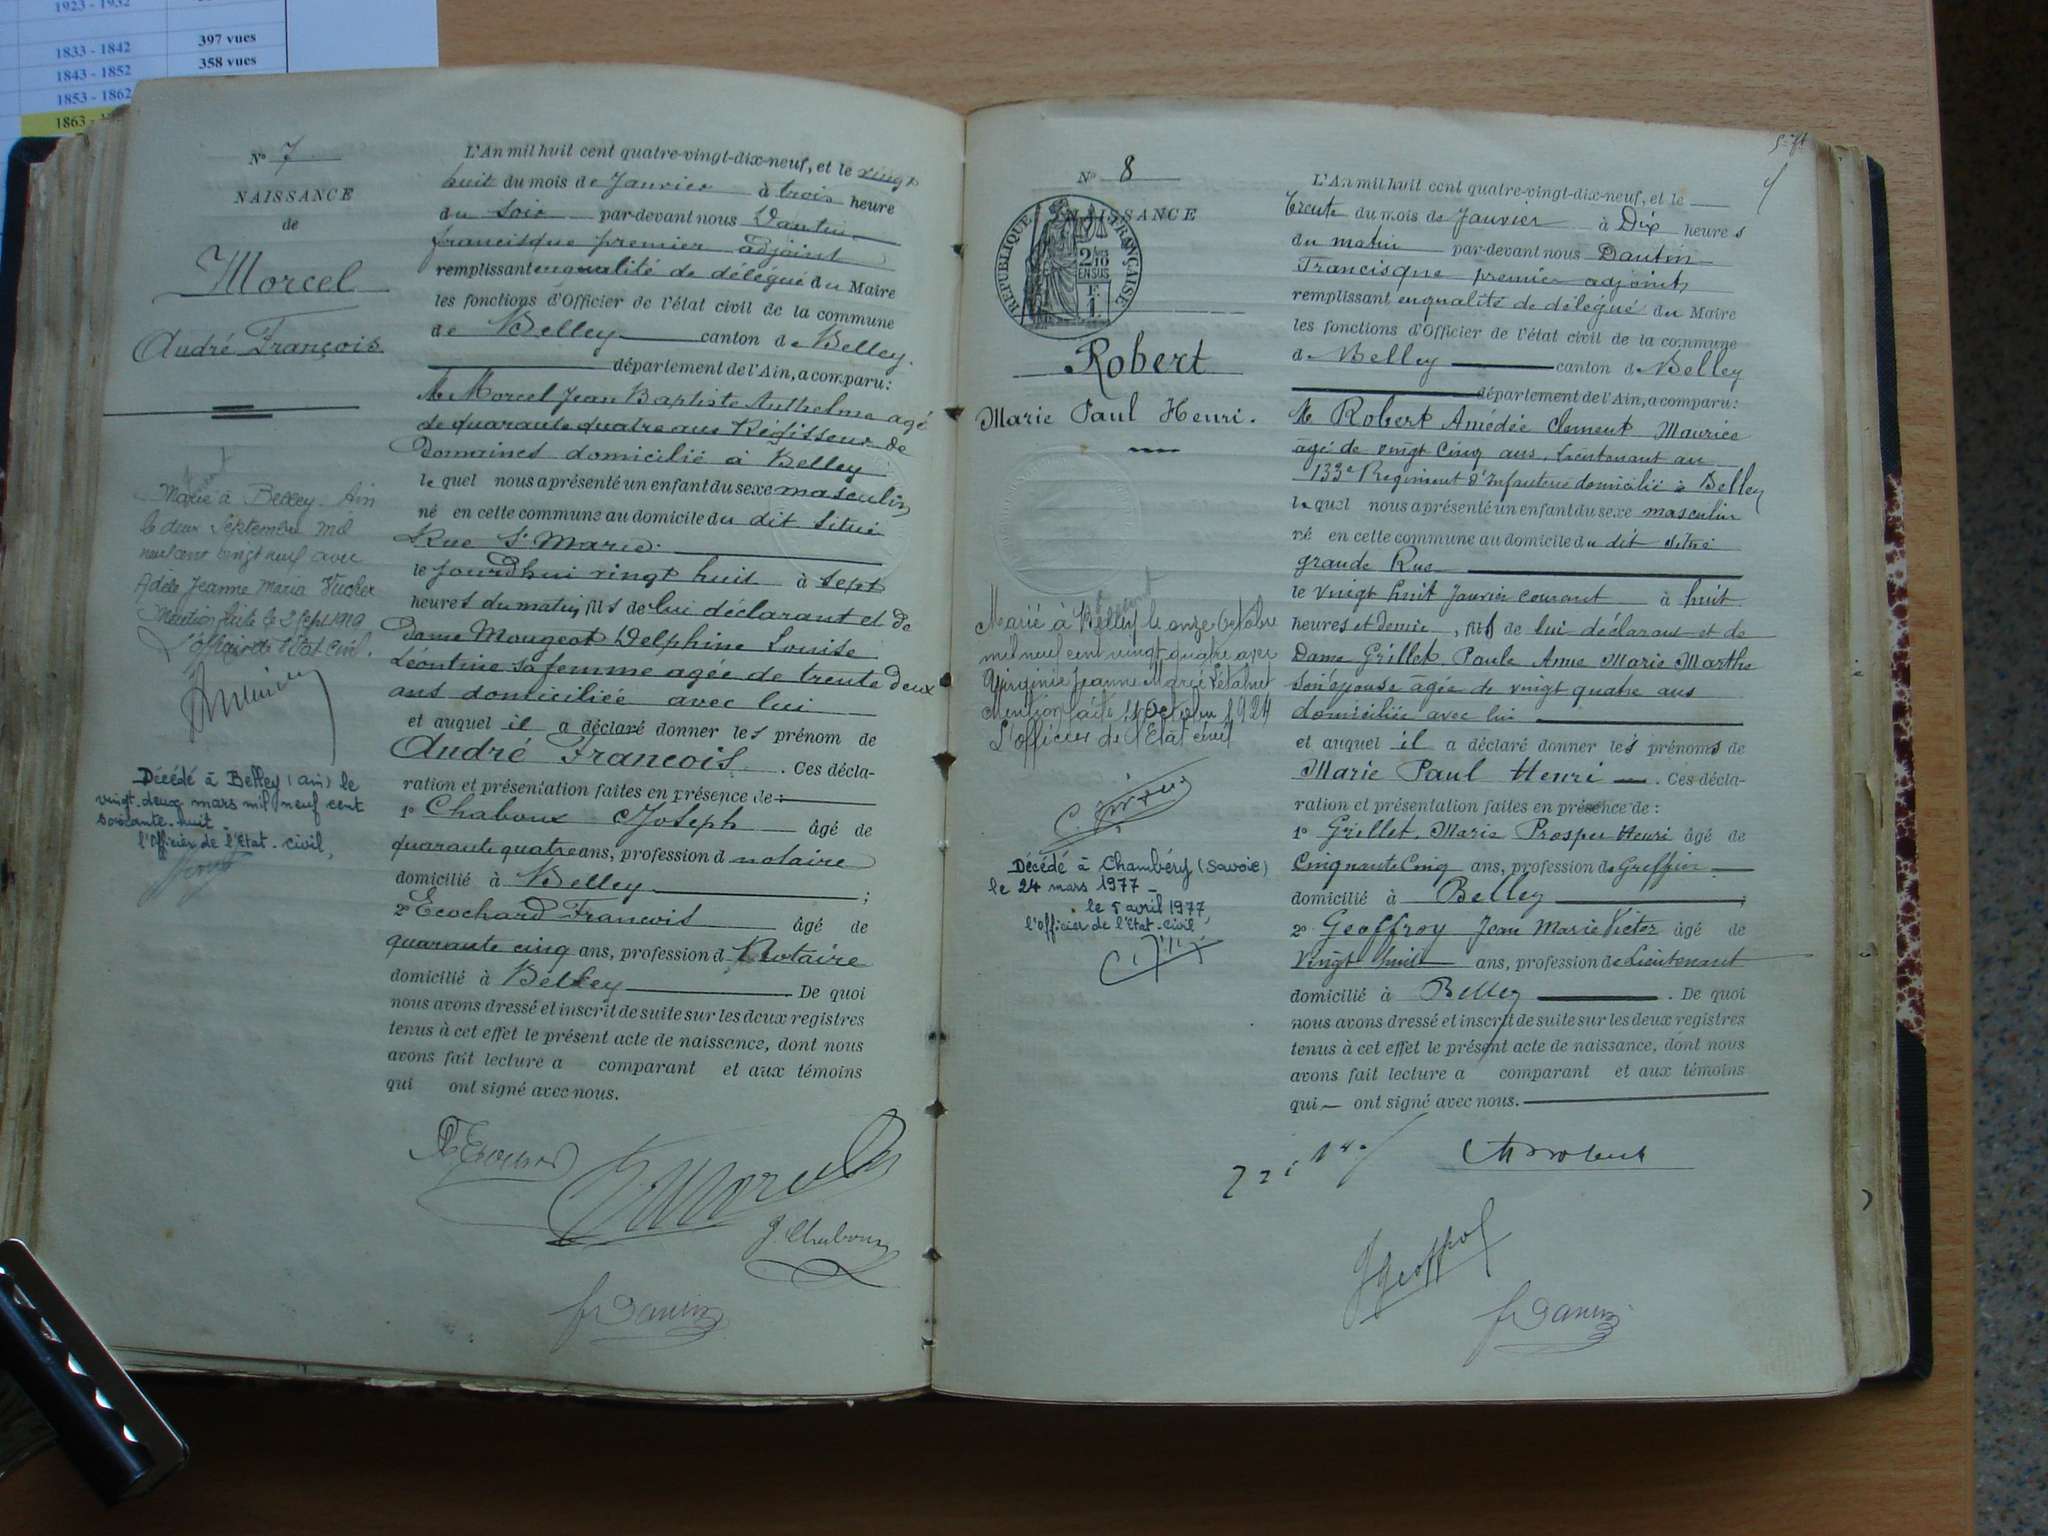 1923 - 1932
1833 - 1842 397 vues
1843 - 1852 358 vues
1853 - 1862
1863 -
N° 7
NAISSANCE
de
Morcel
André François
Marié à Belley Ain
le deux Septembre mil
neuf cent vingt neuf avec
Adèle Jeanne Maria
Mention faite le 2 Sept
L'officier de l'Etat Civil.
Décédé à Belley (Ain) le
vingt-deux mars mil neuf cent
soixante-huit
l'Officier de l'Etat-civil,
L'An mil huit cent quatre-vingt-dix-neuf, et le vingt
huit du mois de Janvier à trois heure
du soir par-devant nous Dantin
francisque premier adjoint
remplissant enqualité de délégué du Maire
les fonctions d'Officier de l'état civil de la commune
de Belley canton de Belley.
département de l'Ain, a comparu:
M. Morcel Jean Baptiste Anthelme agé
de quarante quatre ans Régisseur de
Domaines domicilié à Belley
lequel nous a présenté un enfant du sexe masculin
né en cette commune au domicile du dit situé
Rue St Marie.
le jourd'hui vingt huit à sept
heures du matin, fils de lui déclarant et de
Dame Mougeot Delphine Louise
Léontine sa femme agée de trente deux
ans domiciliée avec lui
et auquel il a déclaré donner les prénom de
André François. Ces décla-
ration et présentation faites en présence de :
1° Chaboux Joseph âgé de
quarante quatre ans, profession d notaire
domicilié à Belley ;
2° Ecochard François âgé de
quarante cinq ans, profession d Notaire
domicilié à Belley De quoi
nous avons dressé et inscrit de suite sur les deux registres
tenus à cet effet le présent acte de naissance, dont nous
avons fait lecture a comparant et aux témoins
qui ont signé avec nous.
F Ecochard
Morcel
J. Chaboux
fr Dantin
N° 8
NAISSANCE
RÉPUBLIQUE FRANÇAISE
2/10
EN SUS
F.
1.
Robert
Marie Paul Henri.
Marié à Belley le onze Octobre
mil neuf cent vingt quatre avec
Virginie Jeanne Marie
Mention faite 11 Octobre 1924
L'officier de l'Etat civil
Décédé à Chambéry (Savoie)
le 24 mars 1977 -
le 5 avril 1977,
l'Officier de l'Etat-Civil
L'An mil huit cent quatre-vingt-dix-neuf, et le
trente du mois de Janvier à Dix heures
du matin par-devant nous Dantin
Francisque premier adjoint
remplissant enqualité de délégué du Maire
les fonctions d'Officier de l'état civil de la commune
de Belley canton de Belley
département de l'Ain, a comparu:
M. Robert Amédée Clement Maurice
âgé de vingt cinq ans, Lieutenant au
133e Regiment d'Infanterie domicilié à Belley
lequel nous a présenté un enfant du sexe masculin
né en cette commune au domicile du dit situé
grande Rue
le vingt huit Janvier courant à huit
heures et demie, fils de lui déclarant et de
Dame Grillet Paule Anne Marie Marthe
son épouse âgée de vingt quatre ans
domiciliée avec lui
et auquel il a déclaré donner les prénoms de
Marie Paul Henri . Ces décla-
ration et présentation faites en présence de :
1° Grillet Marie Prosper Henri âgé de
Cinquante Cinq ans, profession de Greffier
domicilié à Belley ;
2° Geoffroy Jean Marie Victor âgé de
Vingt huit ans, profession de Lieutenant
domicilié à Belley . De quoi
nous avons dressé et inscrit de suite sur les deux registres
tenus à cet effet le présent acte de naissance, dont nous
avons fait lecture a comparant et aux témoins
qui ont signé avec nous.
Robert
J Geoffroy
fr Dantin